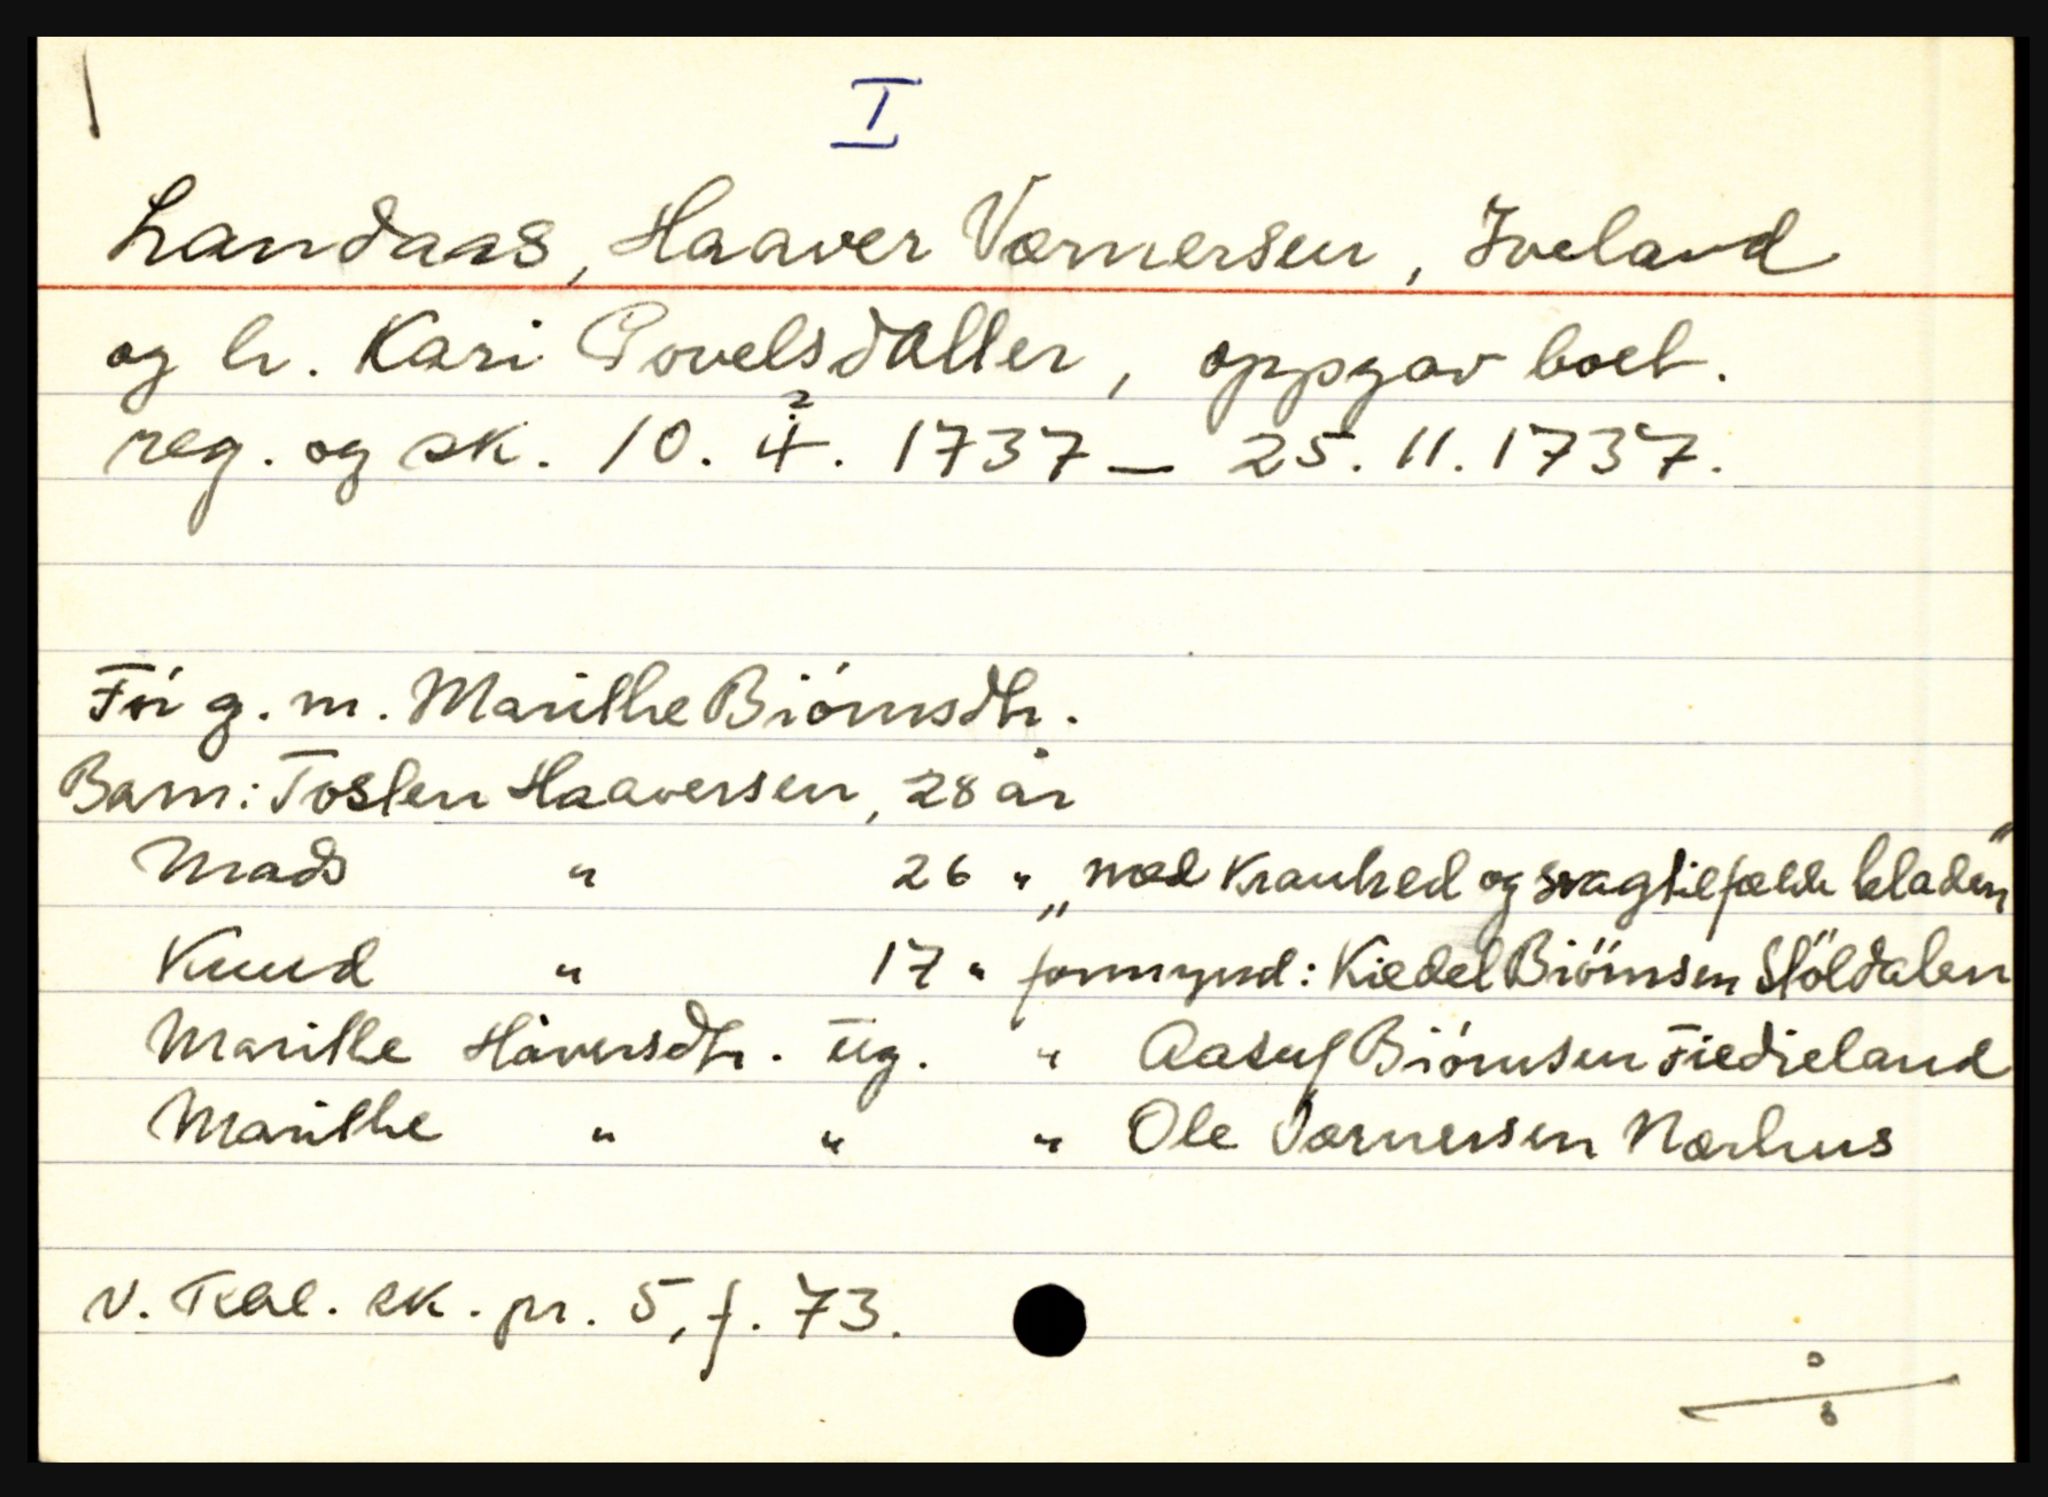 I
Landaas, Haaver Værnersen, Iveland
og h. Kari Povelsdatter, oppgav boet.
2
reg. og sk. 10. 4. 1737 — 25. 11. 1737.
Før g. m. Marithe Biörnsdtr.
Barn: Tosten Haaversen, 28 år
Mads " 26 " „med Kranhed og svaghed beladen"
Knud " 17 " formynd: Kiedel Biörnsen Stöldalen
Marithe Håversdtr. ug. " Aasuf Biörnsen Fiedieland
Marithe " " " Ole Værnersen Nærhus
V. Rbl. sk. pr. 5, f. 73.